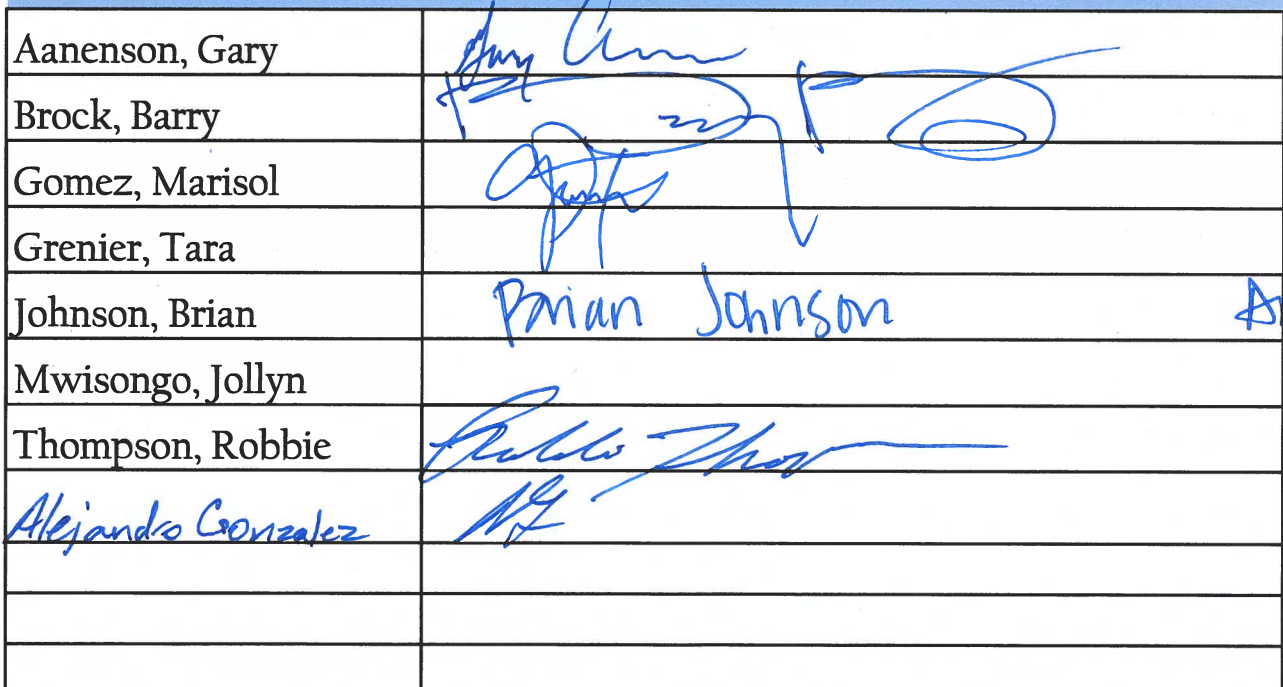 Aanenson, Gary
Brock, Barry
Gomez, Marisol
Grenier, Tara
Johnson, Brian Brian Johnson
Mwisongo, Jollyn
Thompson, Robbie
Alejandro Gonzalez